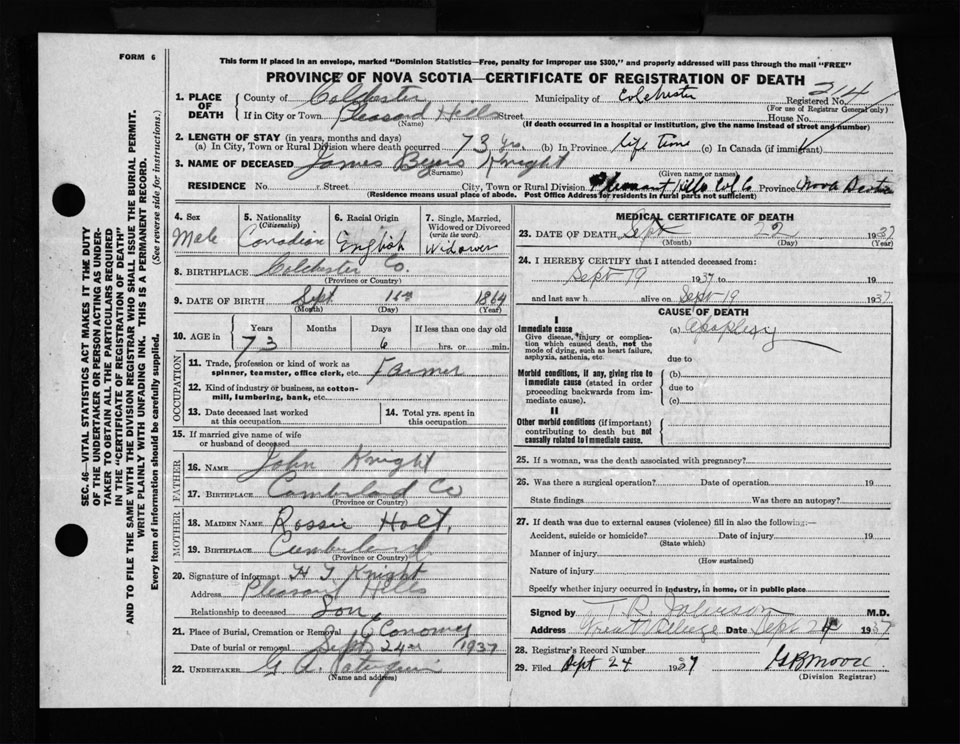 FORM 6
This form if placed in an envelope, marked "Dominion Statistics—Free, penalty for improper use $300," and properly addressed will pass through the mail "FREE"
PROVINCE OF NOVA SCOTIA—CERTIFICATE OF REGISTRATION OF DEATH
1. PLACE OF DEATH County of Colchester Municipality of Colchester Registered No. 214
(For use of Registrar General only)
If in City or Town Pleasand Hills Street House No.
(Name) (If death occurred in a hospital or institution, give the name instead of street and number)
2. LENGTH OF STAY (in years, months and days)
(a) In City, Town or Rural Division where death occurred 73 yrs. (b) In Province life time (c) In Canada (if immigrant)
3. NAME OF DECEASED James Byers Knight
(Surname) (Given name or names)
RESIDENCE No. r. Street City, Town or Rural Division Pleasant Hills Col Co Province Nova Scotia
(Residence means usual place of abode. Post Office Address for residents in rural parts not sufficient)
4. Sex 5. Nationality (Citizenship) 6. Racial Origin 7. Single, Married, Widowed or Divorced (write the word)
Male Canadian English Widower
8. BIRTHPLACE Colchester Co.
(Province or Country)
9. DATE OF BIRTH Sept 16th 1864
(Month) (Day) (Year)
10. AGE in Years Months Days If less than one day old
73 6 hrs. or min.
OCCUPATION
11. Trade, profession or kind of work as spinner, teamster, office clerk, etc. Farmer
12. Kind of industry or business, as cotton-mill, lumbering, bank, etc.
13. Date deceased last worked at this occupation
14. Total yrs. spent in this occupation
15. If married give name of wife or husband of deceased
FATHER
16. NAME John Knight
17. BIRTHPLACE Comberlad Co
(Province or Country)
MOTHER
18. MAIDEN NAME Rossie Holt,
19. BIRTHPLACE Cumberland
(Province or Country)
20. Signature of informant H T Knight
Address Pleasant Hills
Relationship to deceased Son
21. Place of Burial, Cremation or Removal Economy
Date of burial or removal Sept. 24th 1937
22. UNDERTAKER
(Name and address)
MEDICAL CERTIFICATE OF DEATH
23. DATE OF DEATH Sept 22 1937
(Month) (Day) (Year)
24. I HEREBY CERTIFY that I attended deceased from:
Sept 19 1937 to 19
and last saw h alive on Sept 19 1937
CAUSE OF DEATH
I
Immediate cause (a) Apoplexy
Give disease, injury or complication which caused death, not the mode of dying, such as heart failure, asphyxia, asthenia, etc.
due to
Morbid conditions, if any, giving rise to immediate cause (stated in order proceeding backwards from immediate cause). (b)
due to
(c)
II
Other morbid conditions (if important) contributing to death but not causally related to immediate cause.
25. If a woman, was the death associated with pregnancy?
26. Was there a surgical operation? Date of operation 19
State findings Was there an autopsy?
27. If death was due to external causes (violence) fill in also the following:—
Accident, suicide or homicide? Date of injury 19
(State which)
Manner of injury
(How sustained)
Nature of injury
Specify whether injury occurred in industry, in home, or in public place
Signed by T. R. M.D.
Address Great Village Date Sept 24 1937
28. Registrar's Record Number
29. Filed Sept 24 1937
(Division Registrar)
SEC. 46—VITAL STATISTICS ACT MAKES IT THE DUTY
OF THE UNDERTAKER OR PERSON ACTING AS UNDER-
TAKER TO OBTAIN ALL THE PARTICULARS REQUIRED
IN THE "CERTIFICATE OF REGISTRATION OF DEATH"
AND TO FILE THE SAME WITH THE DIVISION REGISTRAR WHO SHALL ISSUE THE BURIAL PERMIT.
WRITE PLAINLY WITH UNFADING INK. THIS IS A PERMANENT RECORD.
Every item of information should be carefully supplied. (See reverse side for instructions.)